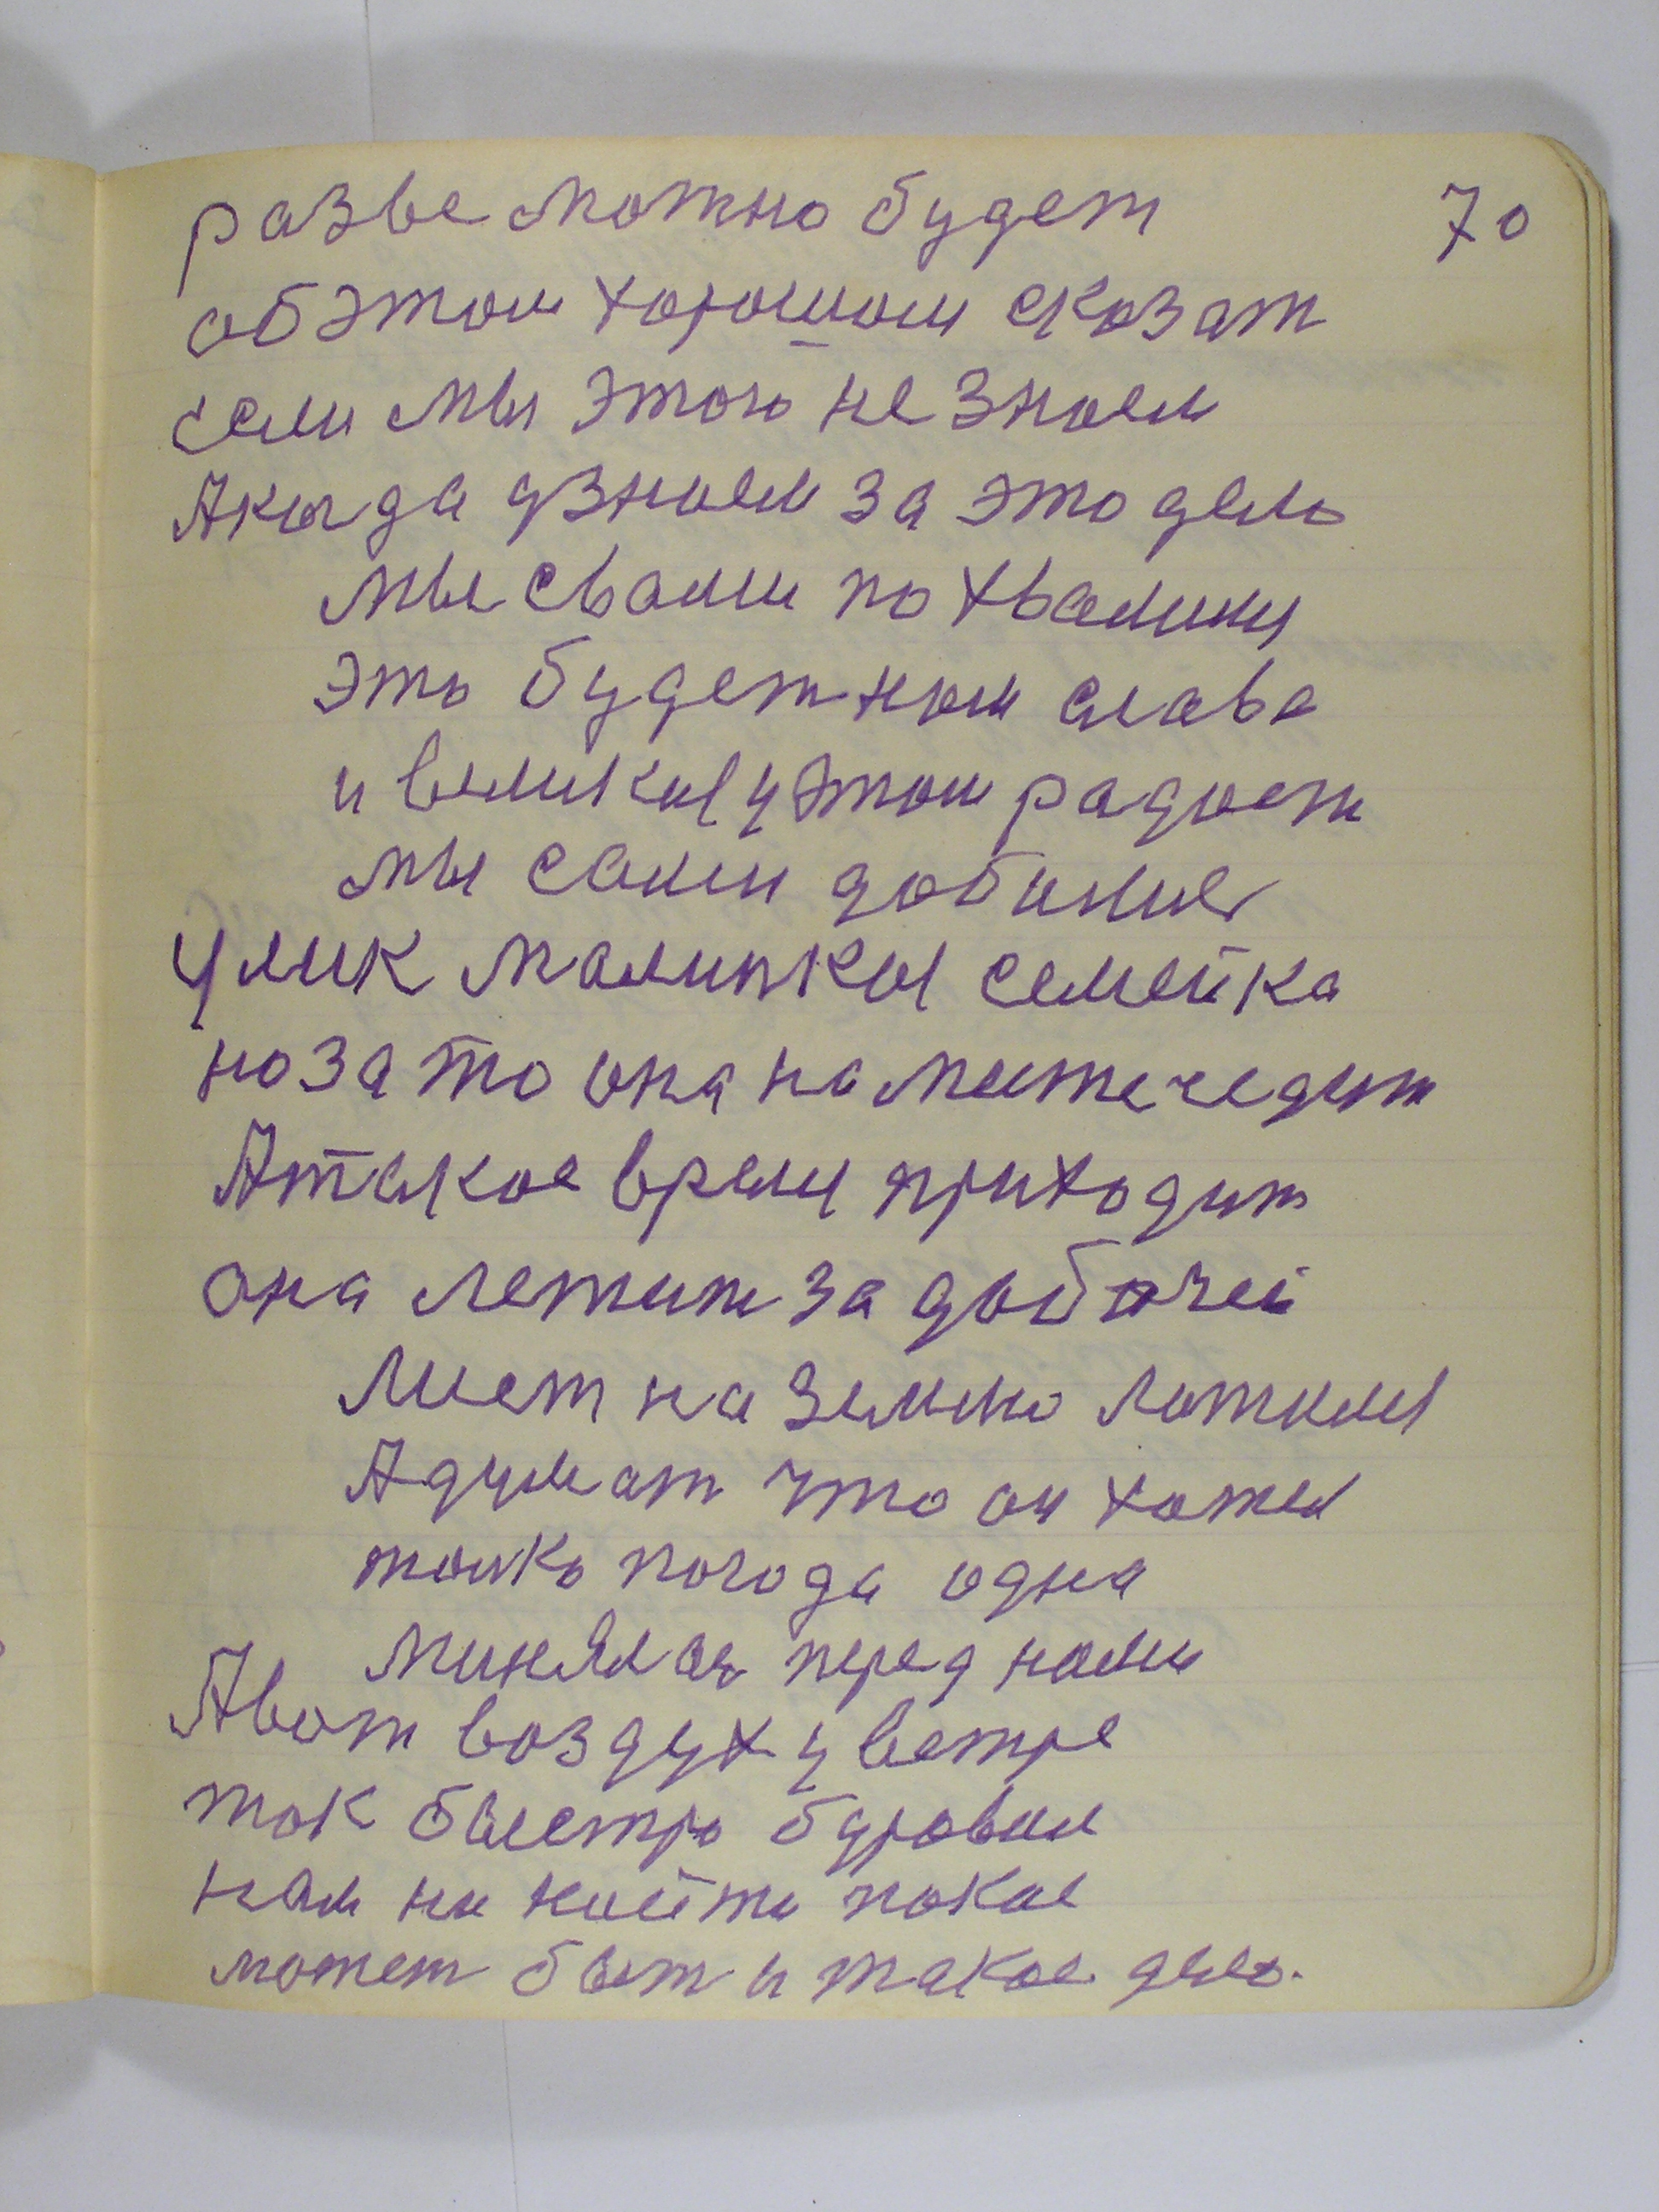 разве можно будет
70
об этом хорошом сказат
если мы этого не знаем
А кагда узнаем за это дело
мы с вами по хвалимы
это будет нам слава
и великая у этом радост
мы сами добилис
У лик малинкая семейка
но за то она на месте седит
А такое время приходит
она летит за добычей
Лист на землю ложилса
А думат что он хотел
толко погода одна
минялас перед нами
А вот воздух у ветре
так быстро буровил
нам ни найти покое
может быт и такое дело.